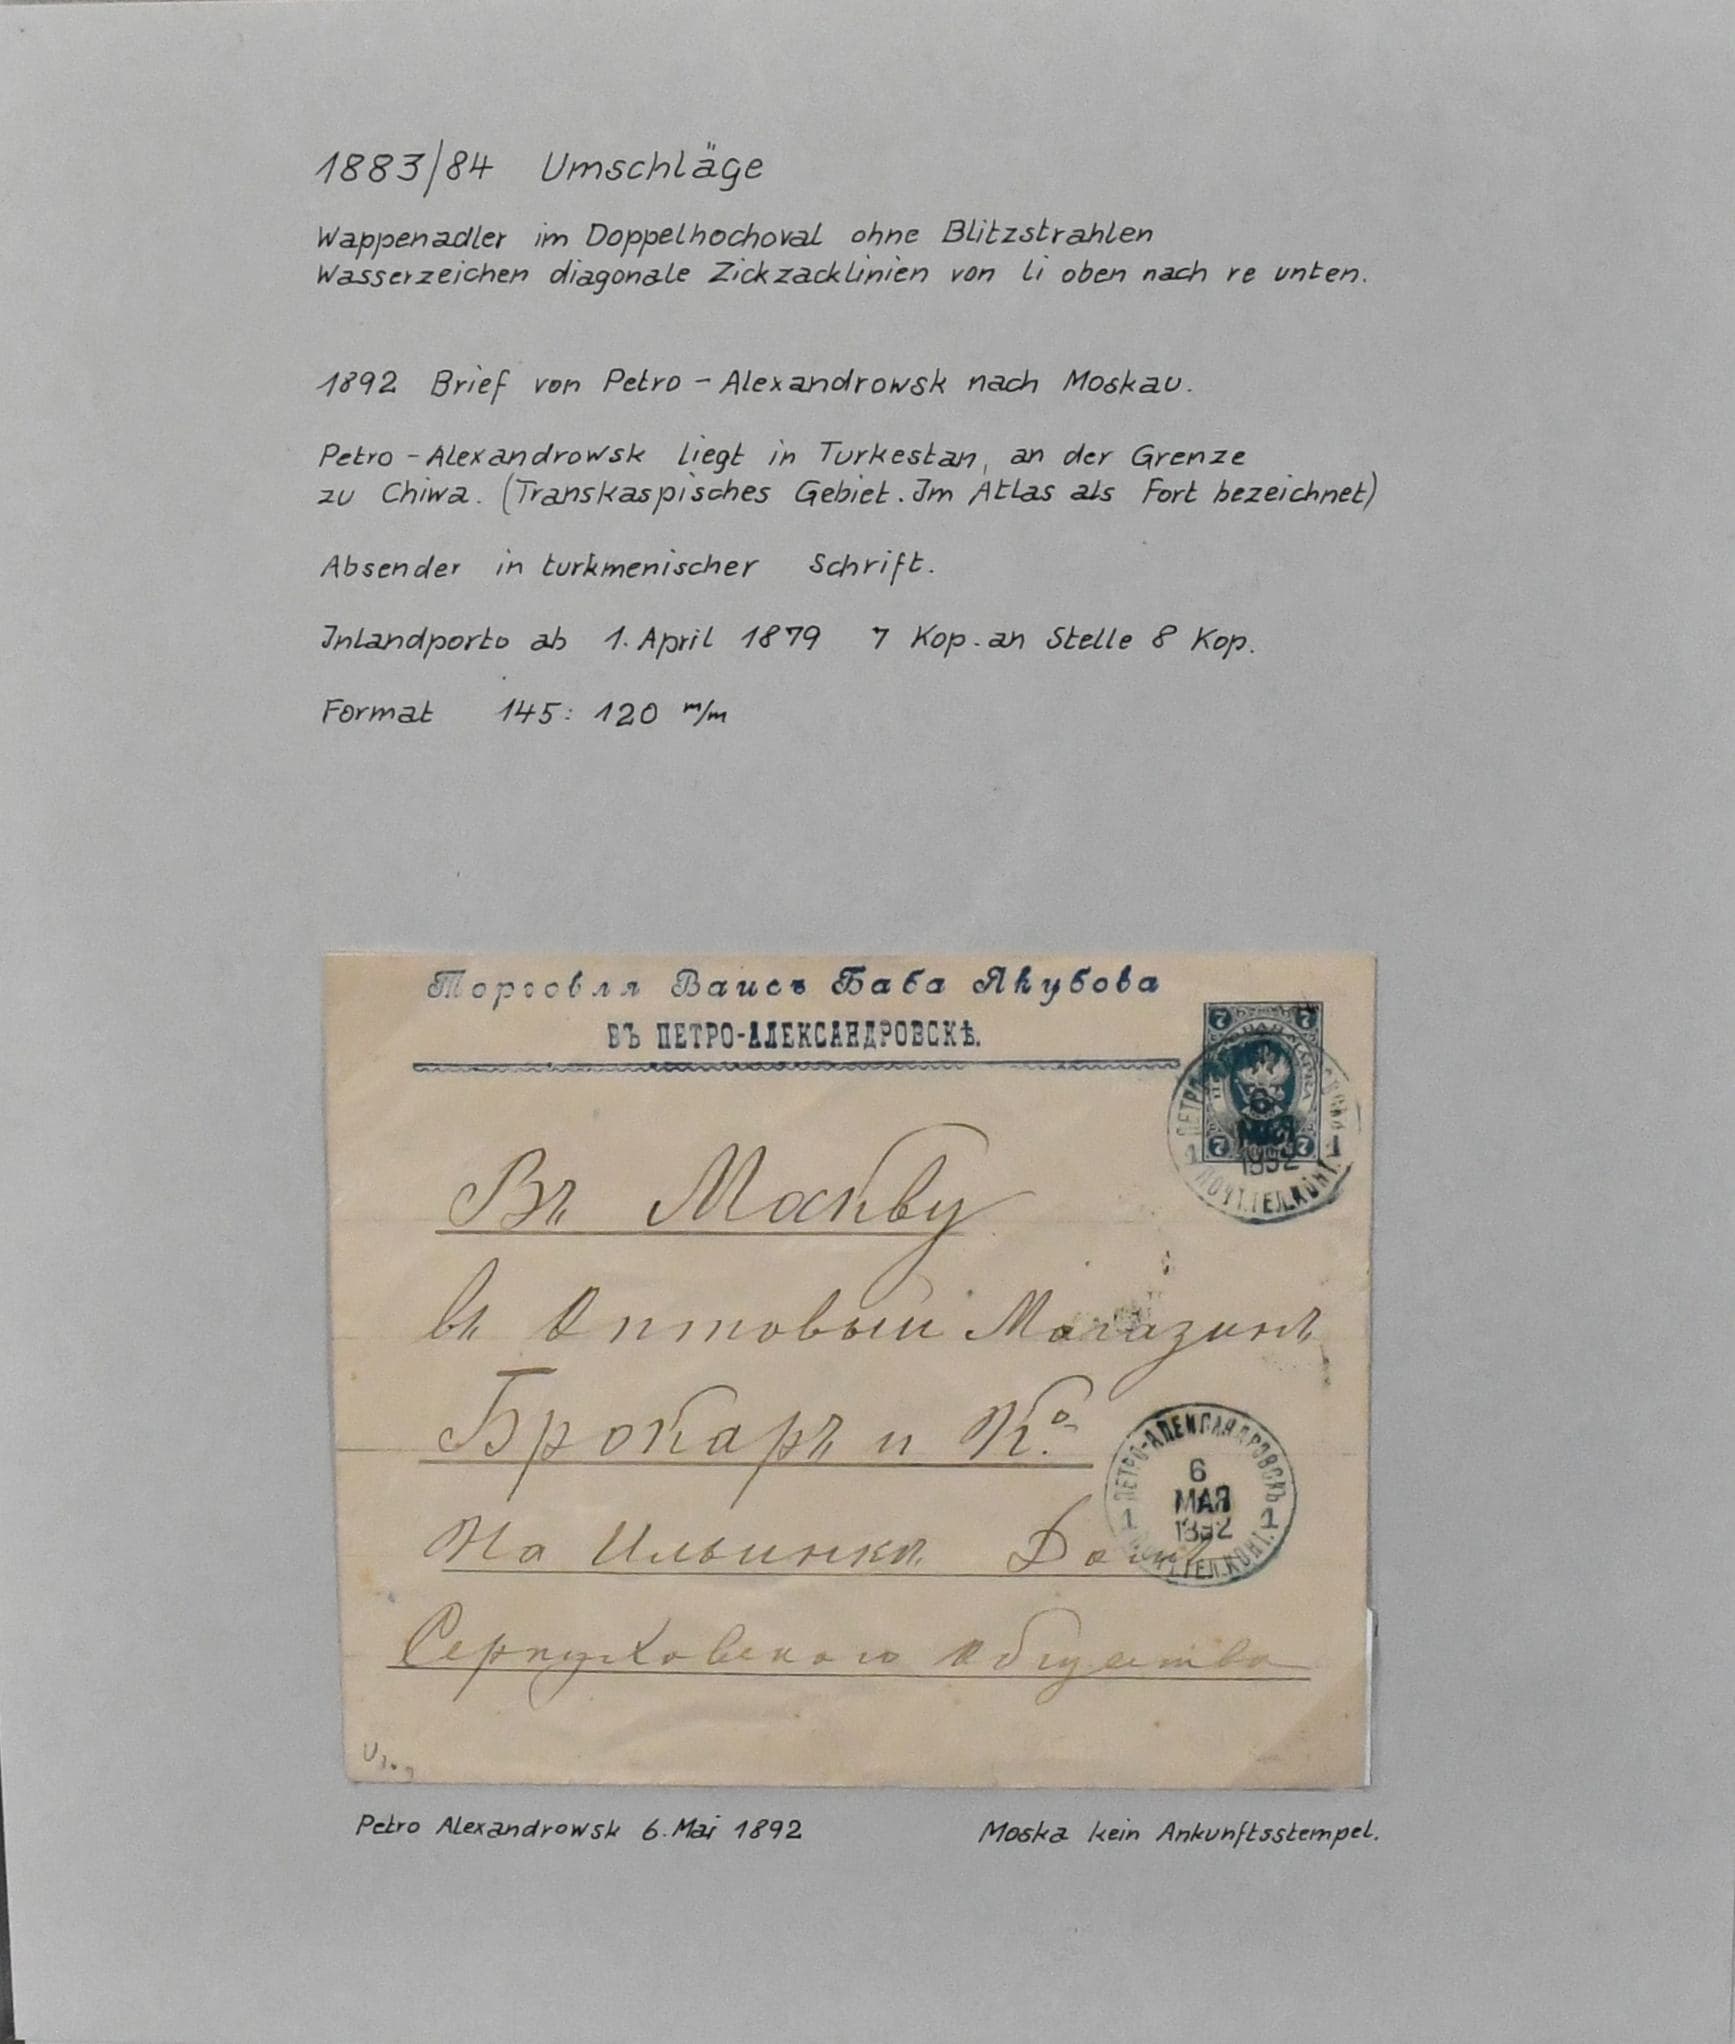 1883/84 Umschläge
Wappenadler im Doppelhochoval ohne Blitzstrahlen
Wasserzeichen diagonale Zickzacklinien von li oben nach re unten.
1892 Brief von Petro-Alexandrowsk nach Moskau.
Petro-Alexandrowsk liegt in Turkestan, an der Grenze
zu Chiwa. (Transkaspisches Gebiet. Im Atlas als Fort bezeichnet)
Absender in turkmenischer Schrift.
Inlandporto ab 1. April 1879 7 Kop. an Stelle 8 Kop.
Format 145: 120 m/m
Торговля Ваисъ Баба Якубова
ВЪ ПЕТРО-АЛЕКСАНДРОВСКѢ.
7 7
МАРКА
6
МАЯ
1892
7 7
1 1
ПОЧТ.ТЕЛ.КОНТ.
Въ Москву
въ Оптовый Магазинъ
Брокаръ и Ко.
ПЕТРО-АЛЕКСАНДРОВСКЪ
6
МАЯ
1892
1 1
ТЕЛ.КОНТ.
На Ильинкѣ Домъ
Серпуховского общества
Petro Alexandrowsk 6. Mai 1892
Moska kein Ankunftsstempel.